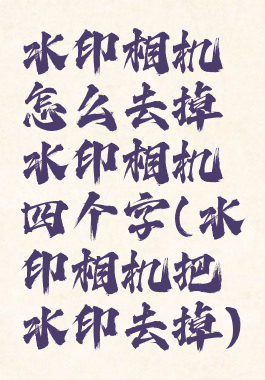 水印相机
怎么去掉
水印相机
四个字(水
印相机把
水印去掉)